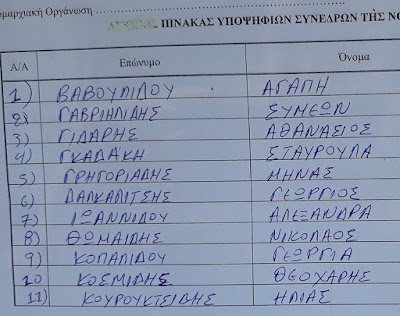 ομαρχιακή Οργάνωση ....................
ΠΙΝΑΚΑΣ ΥΠΟΨΗΦΙΩΝ ΣΥΝΕΔΡΩΝ ΤΗΣ ΝΟ
Α/Α Επώνυμο Όνομα
1) ΒΑΒΟΥΛΙΔΟΥ ΑΓΑΠΗ
2) ΓΑΒΡΙΗΛΙΔΗΣ ΣΥΜΕΩΝ
3) ΓΙΔΑΡΗΣ ΑΘΑΝΑΣΙΟΣ
4) ΓΚΑΔΑΚΗ ΣΤΑΥΡΟΥΛΑ
5) ΓΡΗΓΟΡΙΑΔΗΣ ΜΗΝΑΣ
6) ΔΑΛΚΑΛΙΤΣΗΣ ΓΕΩΡΓΙΟΣ
7) ΙΩΑΝΝΙΔΟΥ ΑΛΕΞΑΝΔΡΑ
8) ΘΩΜΑΙΔΗΣ ΝΙΚΟΛΑΟΣ
9) ΚΟΠΑΛΙΔΟΥ ΓΕΩΡΓΙΑ
10 ΚΟΣΜΙΔΗΣ ΘΕΟΧΑΡΗΣ
11) ΚΟΥΡΟΥΚΤΣΙΔΗΣ ΗΛΙΑΣ